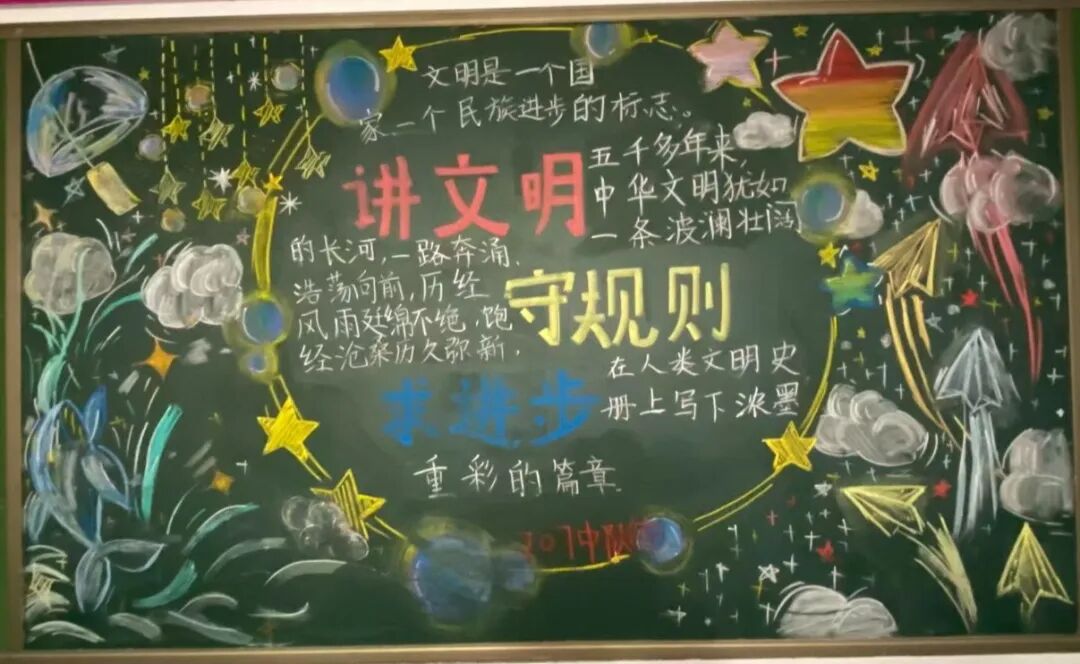 文明是一个国
家一个民族进步的标志。
讲文明
五千多年来，
中华文明犹如
一条波澜壮阔
的长河，一路奔涌、
浩荡向前，历经
风雨延绵不绝，饱
经沧桑历久弥新，
守规则
在人类文明史
册上写下浓墨
求进步
重彩的篇章
207中队